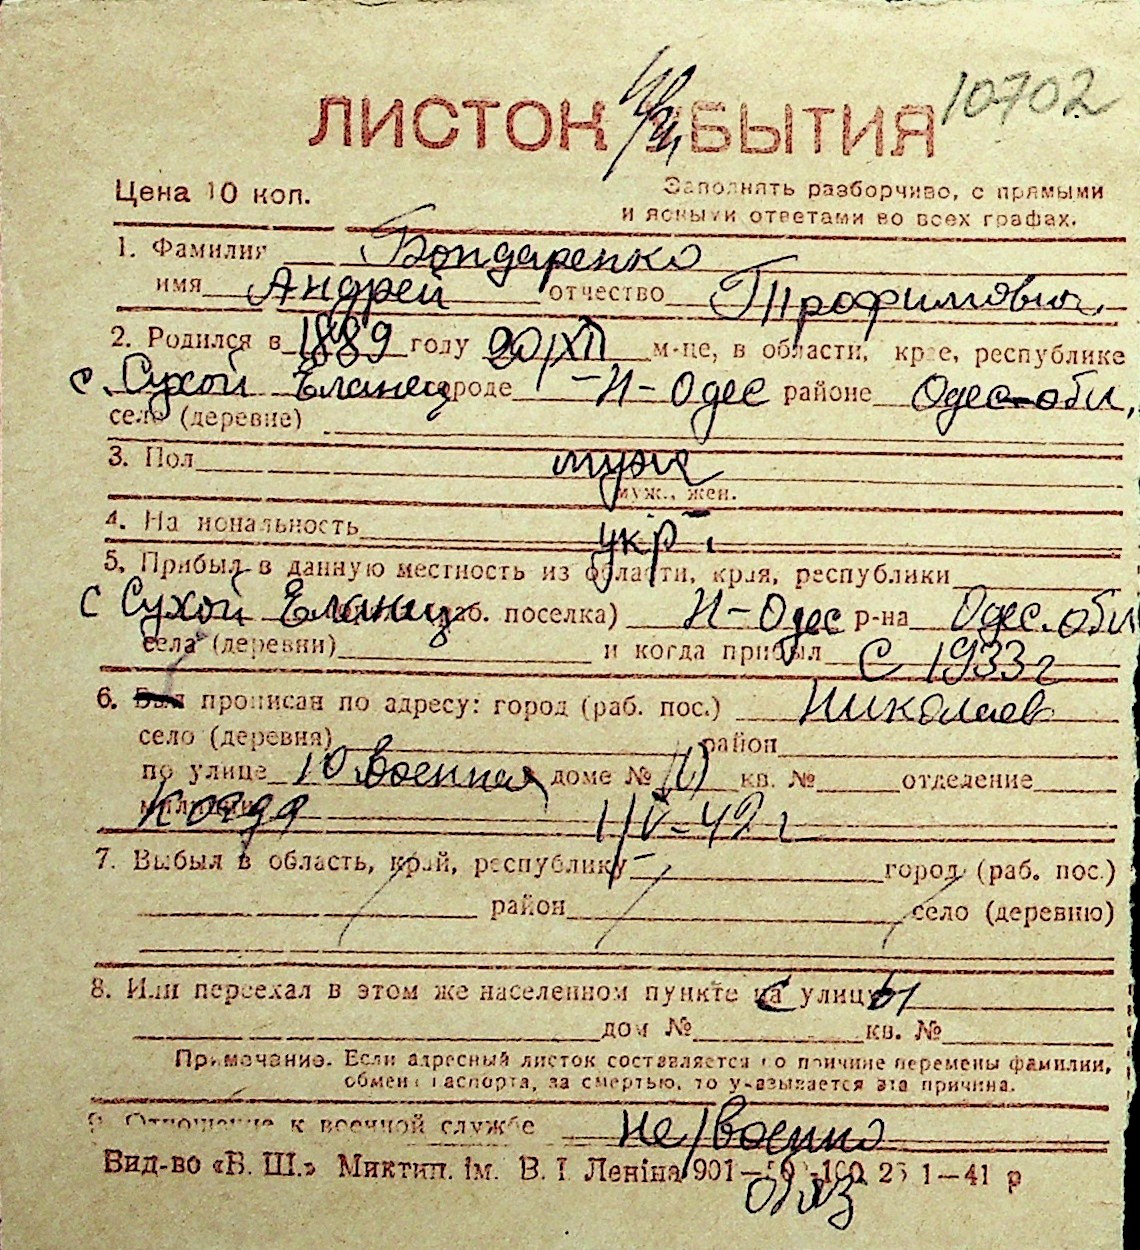 10702
ЛИСТОК УБЫТИЯ
Цена 10 коп.
Заполнять разборчиво, с прямыми
и ясными ответами во всех графах.
1. Фамилия Бондаренко
имя Андрей отчество Трофимович
2. Родился в 1889 году 20/XII м-це, в области, крае, республике
с. Сухой Еланец городе -Н-Одес районе Одес-обл.
село (деревне)
3. Пол муж
муж., жен.
4. Национальность укр.
5. Прибыл в данную местность из области, края, республики
с Сухой Еланец (раб. поселка) Н-Одес р-на Одес. обл
села (деревни) и когда прибыл с 1933 г
6. Был прописан по адресу: город (раб. пос.) Николаев
село (деревня) район
по улице 10 военная доме № 10 кв. № отделение
милиции когда 1/V-42 г
7. Выбыл в область, край, республику город (раб. пос.)
район село (деревню)
8. Или переехал в этом же населенном пункте на улицу
дом № кв. №
Примечание. Если адресный листок составляется по причине перемены фамилии,
обмена паспорта, за смертью, то указывается эта причина.
9. Отношение к военной службе не/военно
Вид-во «Б. Ш.» Миктип. ім. В. І Леніна 901—50 -100 25 1—41 р
обяз